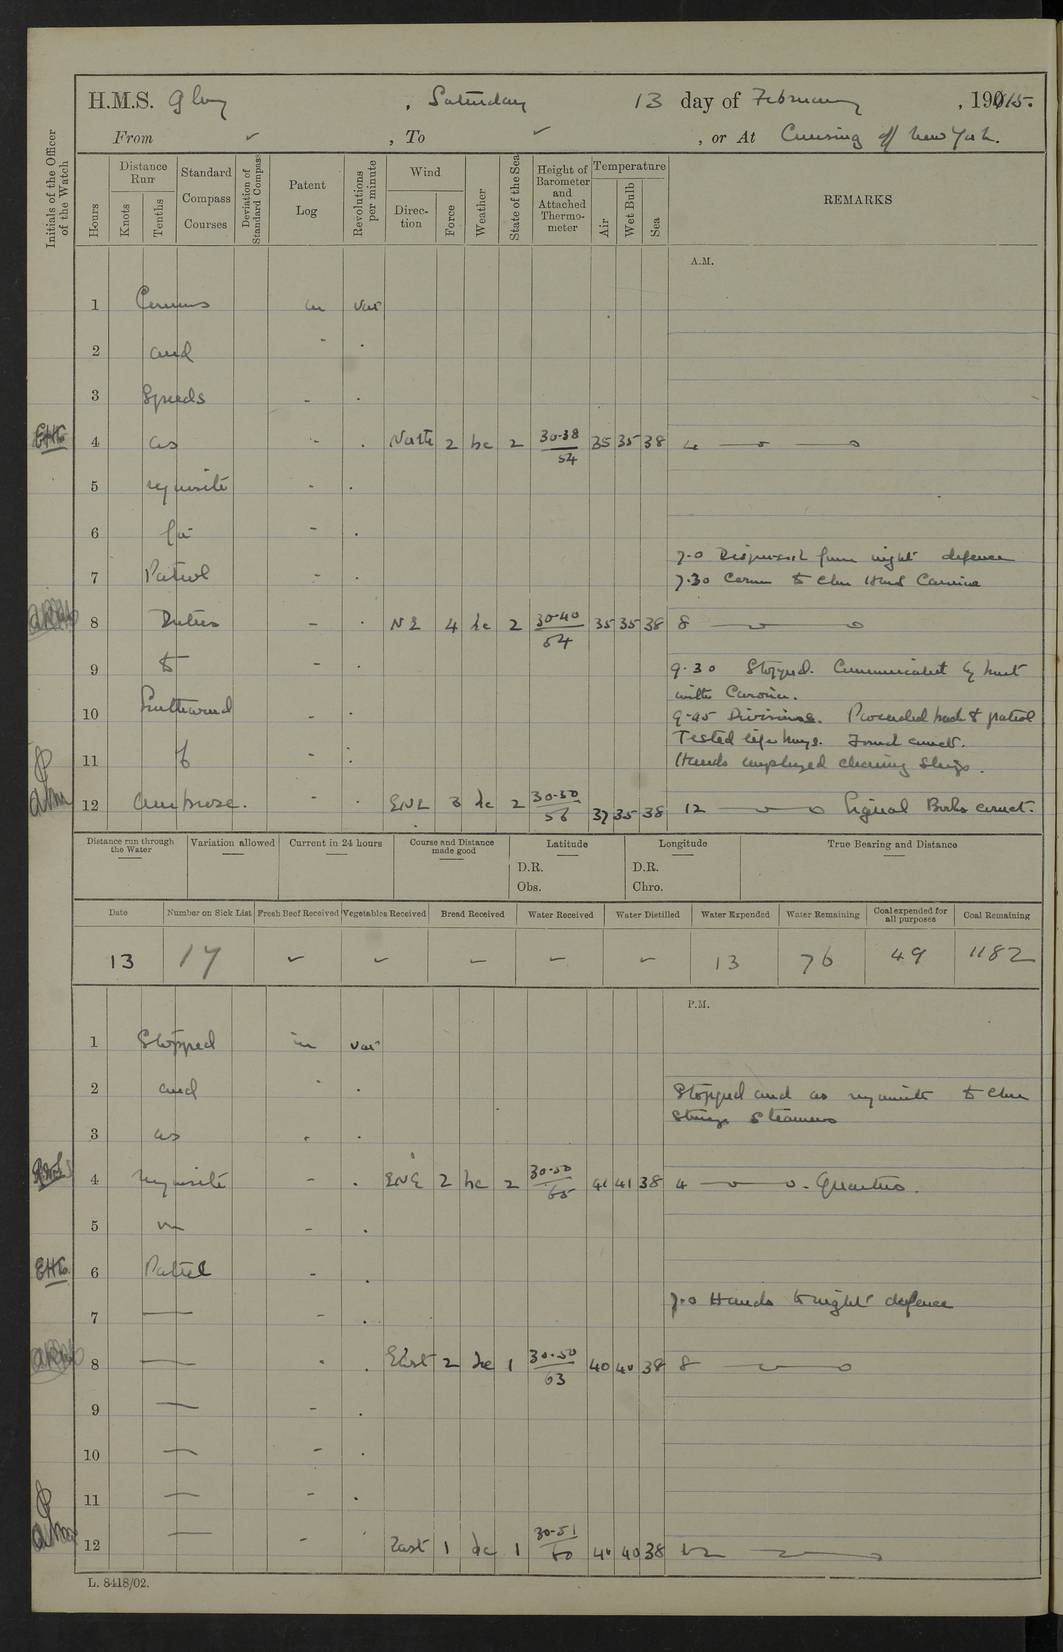 H.M.S. Glory, Saturday 13 day of February, 1915.
From ✓, To ✓, or At Cruising off New York.
Initials of the Officer of the Watch
Hours
Distance Run
Knots
Tenths
Standard Compass Courses
Deviation of Standard Compass
Patent Log
Revolutions per minute
Wind
Direction
Force
Weather
State of the Sea
Height of Barometer and Attached Thermometer
Temperature
Air
Wet Bulb
Sea
REMARKS
A.M.
1 Courses in var
2 and - .
3 Speeds - .
EHG 4 as - . North 2 bc 2 30.38 54 35 35 38 4 —o —o
5 requisite - .
6 for - .
7.0 Dispersed from night defence
7 Patrol - . 7.30 Course to close HMS Caronia
8 Duties - . NE 4 bc 2 30.40 54 35 35 38 8 —o —o
9 to - . 9.30 Stopped. Communicated by boat
with Caronia.
10 Southward - . 9.45 Divisions. Proceeded back to patrol
Tested life buoys. Found correct.
11 of - . Hands employed cleaning Ship.
12 Ambrose. - . ENE 3 bc 2 30.50 56 37 35 38 12 —o —o Signal Books correct.
Distance run through the Water
Variation allowed
Current in 24 hours
Course and Distance made good
Latitude
D.R.
Obs.
Longitude
D.R.
Chro.
True Bearing and Distance
Date Number on Sick List Fresh Beef Received Vegetables Received Bread Received Water Received Water Distilled Water Expended Water Remaining Coal expended for all purposes Coal Remaining
13 17 ✓ ✓ ✓ ✓ ✓ 13 76 49 1182
P.M.
1 Stopped in var
2 and - . Stopped and as requisite to close
Steamers
3 as - .
4 requisite - . ENE 2 bc 2 30.50 65 41 41 38 4 —o —o. Quarters.
5 on - .
EHG 6 Patrol - .
7.0 Hands to night defence
7 — - .
8 — - . East 2 bc 1 30.50 63 40 40 38 8 —o —o
9 — - .
10 — - .
11 — - .
12 — - . East 1 bc 1 30.51 60 40 40 38 12 —o —o
L. 8418/02.